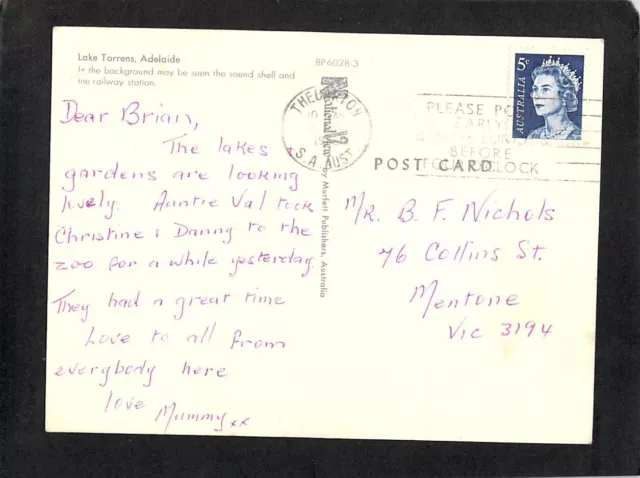 Lake Torrens, Adelaide
In the background may be seen the sound shell and
the railway station.
BP6028-3
Dear Brian,
The lakes
gardens are looking
lovely. Auntie Val took
Christine & Danny to the
zoo for a while yesterday.
They had a great time
Love to all from
everybody here
love Mummy xx
by Murfett Publishers, Australia
THEBARTON
S.A. AUST
PLEASE
EARLY
BEFORE
CLOCK
5c
AUSTRALIA
POST CARD
Mr. B. F. Nichols
76 Collins St.
Mentone
Vic 3194